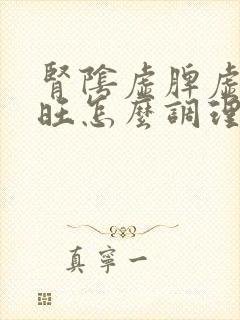 腎陰虛脾虛
旺怎麼調理
真寧一